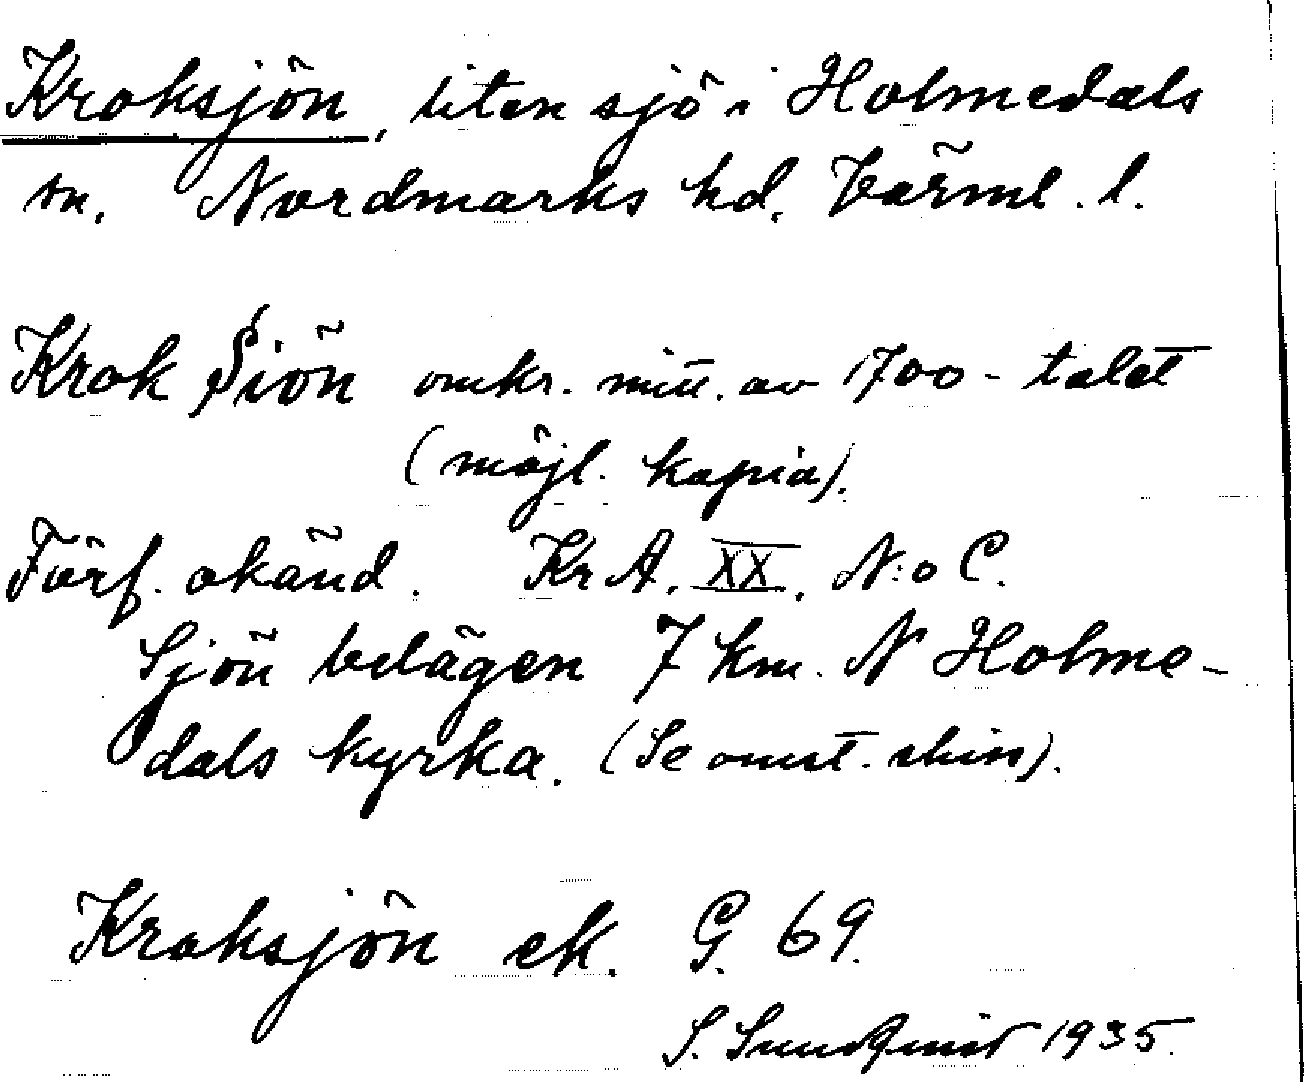 Kroksjön, liten sjö i Holmedals
sn. Nordmarks hd. Värml. l.
Krok Siön omkr. mitt. av 1700-talet
(möjl. kopia).
Förf. okänd. KrA. XX. N:o C.
Sjön belägen 7 km. N Holme-
dals kyrka. (Se omst. skiss).
Kroksjön ek. G. 69.
S. Sundqvist 1935.